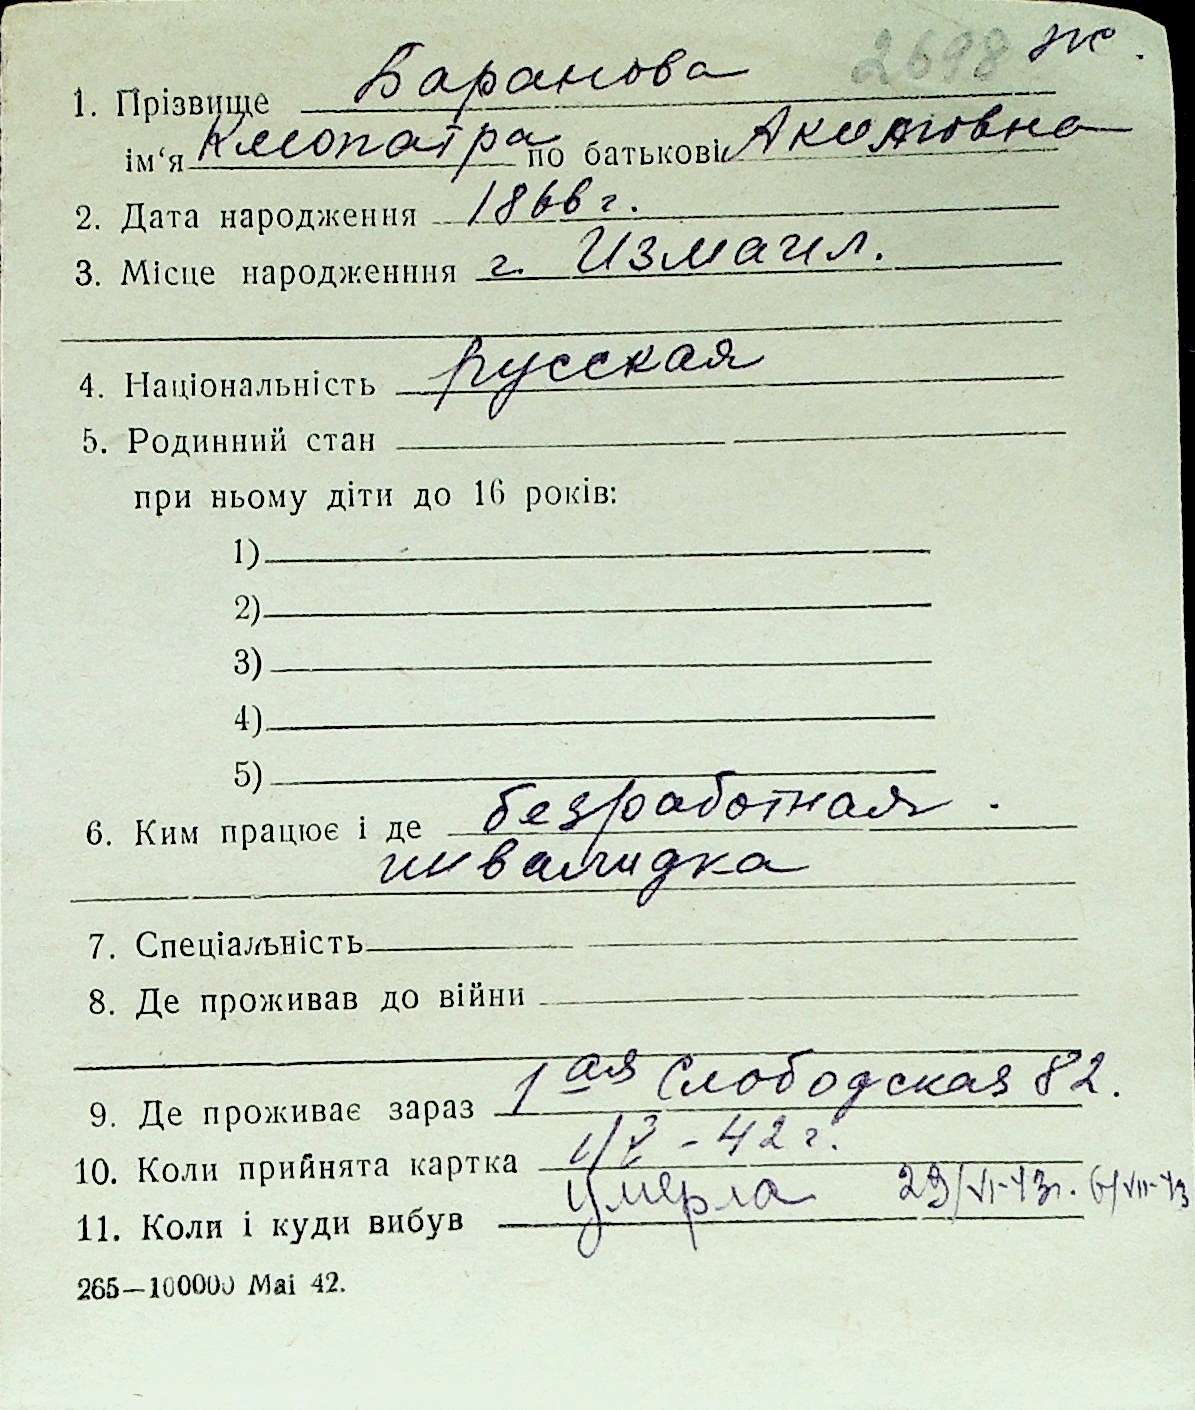 2698 ж.
1. Прізвище Баранова
ім‘я Клеопатра по батькові
2. Дата народження 1866 г.
3. Місце народженння г. Измаил.
4. Національність русская
5. Родинний стан
при ньому діти до 16 років:
1)
2)
3)
4)
5)
6. Ким працює і де безработная.
инвалидка
7. Спеціальність
8. Де проживав до війни
9. Де проживає зараз 1ая Слободская 82.
10. Коли прийнята картка - 42 г.
11. Коли і куди вибув умерла 29/VI-43г. 6/VII-43
265—100000 Mai 42.